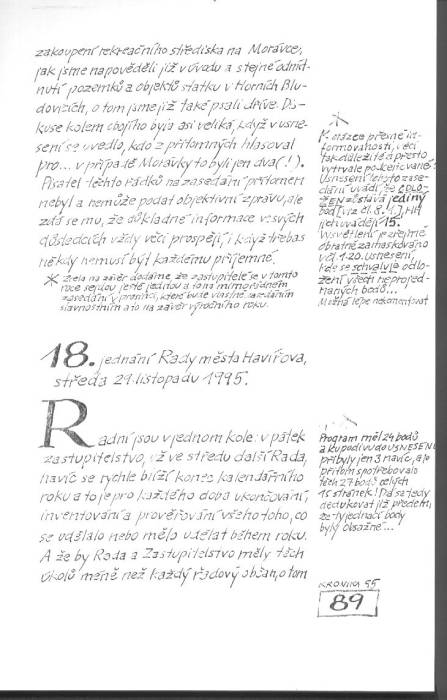 zakoupení rekreačního střediska na Morávce,
jak jsme napověděli již v úvodu a stejné odmít-
nutí pozemků a objektů statku v Horních Blu-
dovicích, o tom jsme již také psali dříve. Dis-
kuse kolem obojího byla asi veliká, když v usne-
sení se uvedlo, kdo z přítomných hlasoval
pro... v případě Morávky to byli jen dva (!).
Pisatel těchto řádků na zasedání přítomen
nebyl a nemůže podat objektivní zprávu, ale
zdá se mu, že důkladné informace ve svých
důsledcích vždy věci prospějí, i když třebas
někdy nemusí být každému příjemné.
* Zcela na závěr dodáme, že zastupitelé se v tomto
roce sejdou ještě jednou a to na mimořádném
zasedání v prosinci, které bude vlastně zasedáním
slavnostním a to na závěr výročního roku.
*
K otázce přesné in-
formovanosti, věci
tak důležité a přesto
vytrvale pokřivované:
Usnesení z tohoto zase-
dání uvádí, že ODLO-
ŽEN zůstává jediný
bod (viz čl. 8.4.), HN
jich uvádějí 15.
Vysvětlení je zřejmě
obratně zamaskováno
v čl. 1.20. usnesení,
kde se schvaluje odlo-
žení všech neprojed-
naných bodů...
Možná lépe nekomentovat
18. jednání Rady města Havířova,
středa 29. listopadu 1995.
Radní jsou v jednom kole: v pátek
zastupitelstvo, už ve středu další Rada,
navíc se rychle blíží konec kalendářního
roku a to je pro každého doba ukončování,
inventování a prověřování všeho toho, co
se udělalo nebo mělo udělat během roku.
A že by Rada a Zastupitelstvo měly těch
úkolů méně než každý řadový občan, o tom
*
Program měl 24 bodů
a kupodivu do USNESENÍ
přibyly jen 3 navíc, ale
přitom spotřebovalo
těch 27 bodů celých
15 stránek! Dá se tedy
dedukovat již předem,
že ty jednací body
byly obsažné...
KRONIKA 95
89